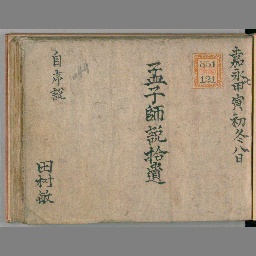 嘉永甲寅初冬八日
851
121
孟子師説拾遺
自序説
田村敏